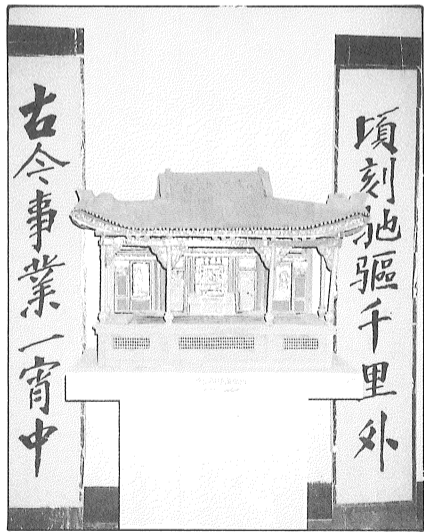 頃刻馳驅千里外
古今事業一宵中